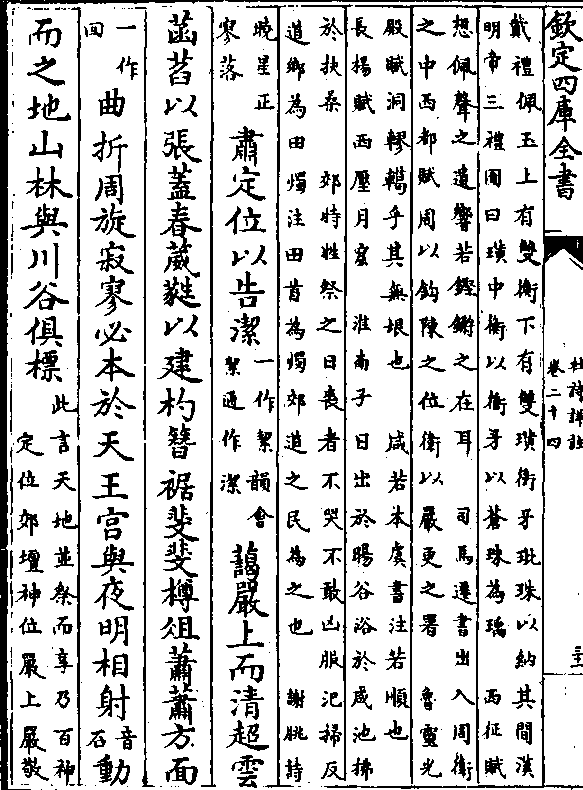 欽定四庫全書
杜詩詳註
卷二十四
戴禮佩玉上有雙衡下有雙璜衡牙玭珠以納其間漢
明帝三禮圖曰璜中衡以衡牙以蒼珠為瑀 西征賦
想佩聲之遺響若鏗鏘之在耳 司馬遷書出入周衛
之中西都賦周以鈎陳之位衛以嚴更之署 魯靈光
殿賦洞轇轕乎其無垠也 咸若本虞書注若順也
長揚賦西壓月窟 淮南子日出於暘谷浴於咸池拂
於扶桑 郊特牲祭之日喪者不哭不敢凶服汜掃反
道鄉為田燭注田首為燭郊道之民為之也 謝朓詩
曉星正寥落
肅定位以告潔一作絜韻會絜通作潔藹嚴上而清超雲
菡萏以張蓋春葳蕤以建杓簪裾斐斐樽俎蕭蕭方面
一作回曲折周旋寂寥必本於天王宮與夜明相射音石動
而之地山林與川谷俱標此言天地並祭而享乃百神
定位郊壇神位嚴上嚴敬